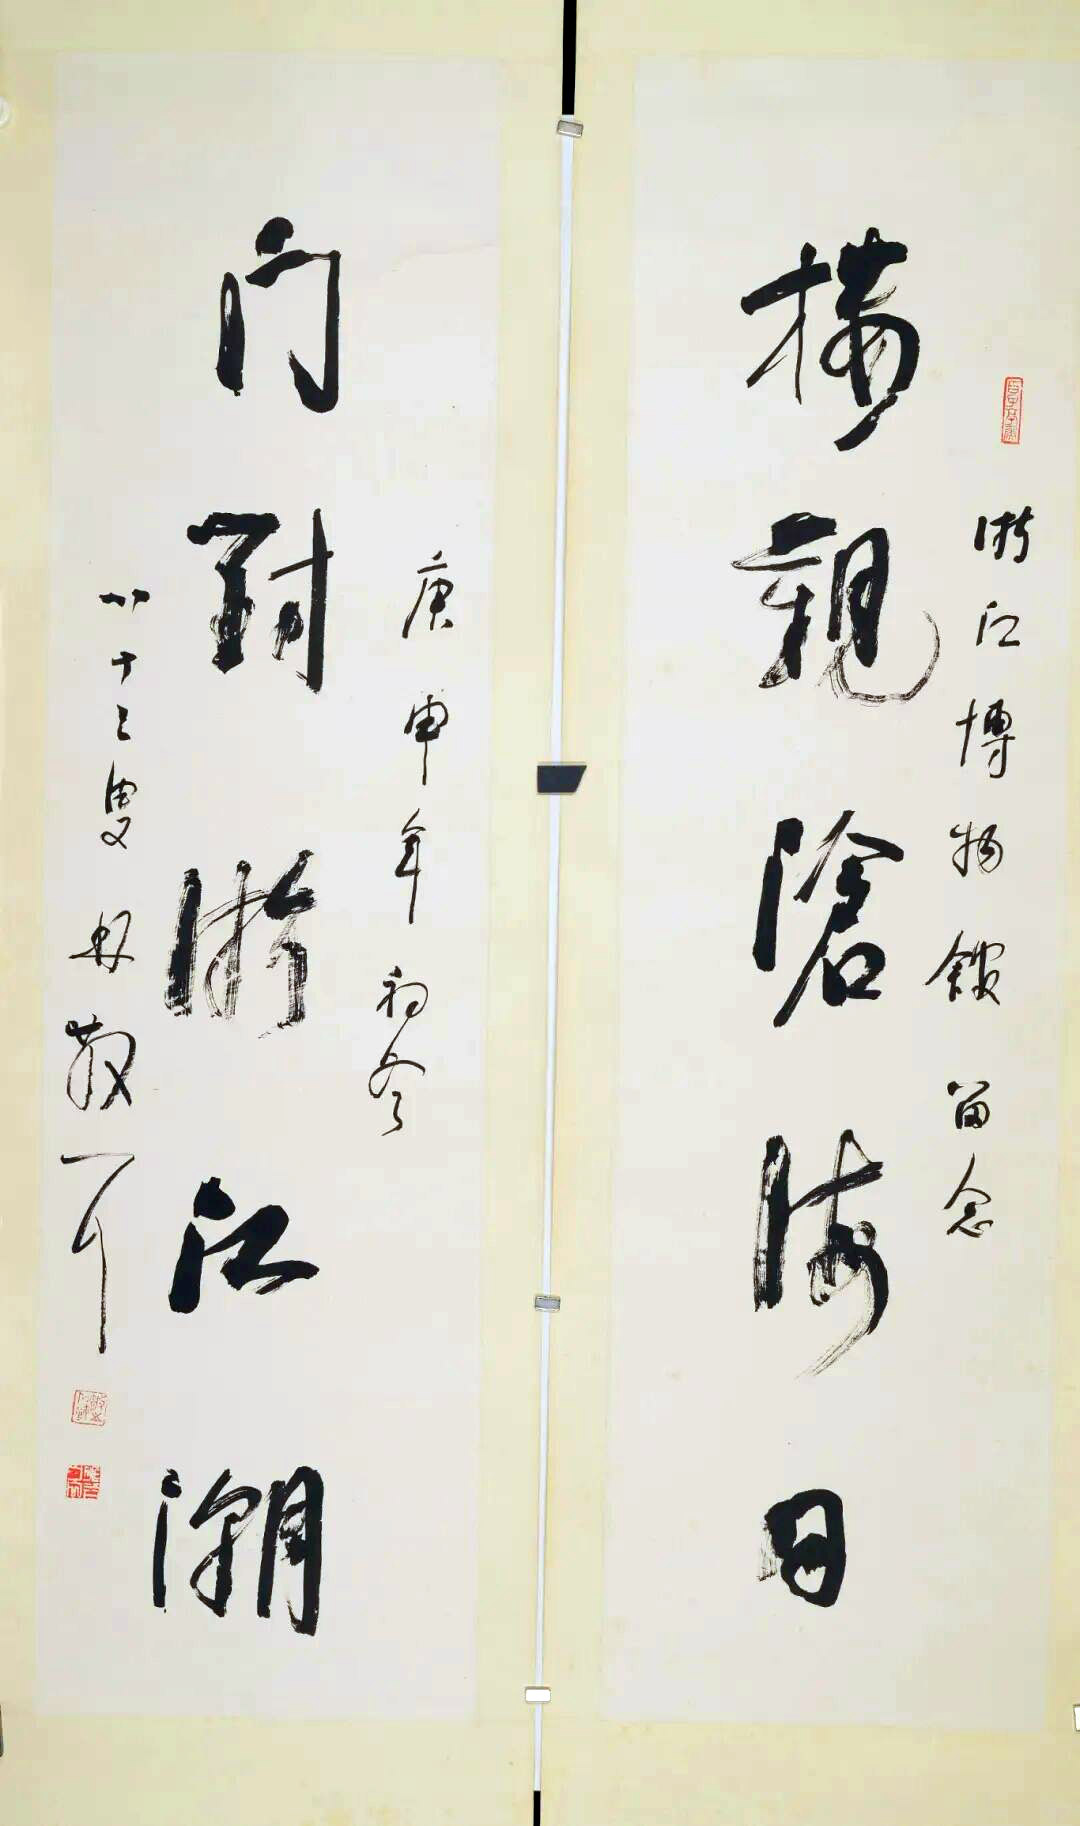 浙江博物館留念
樓觀滄海日
庚申年初冬
门對浙江潮
八十三叟林散耳